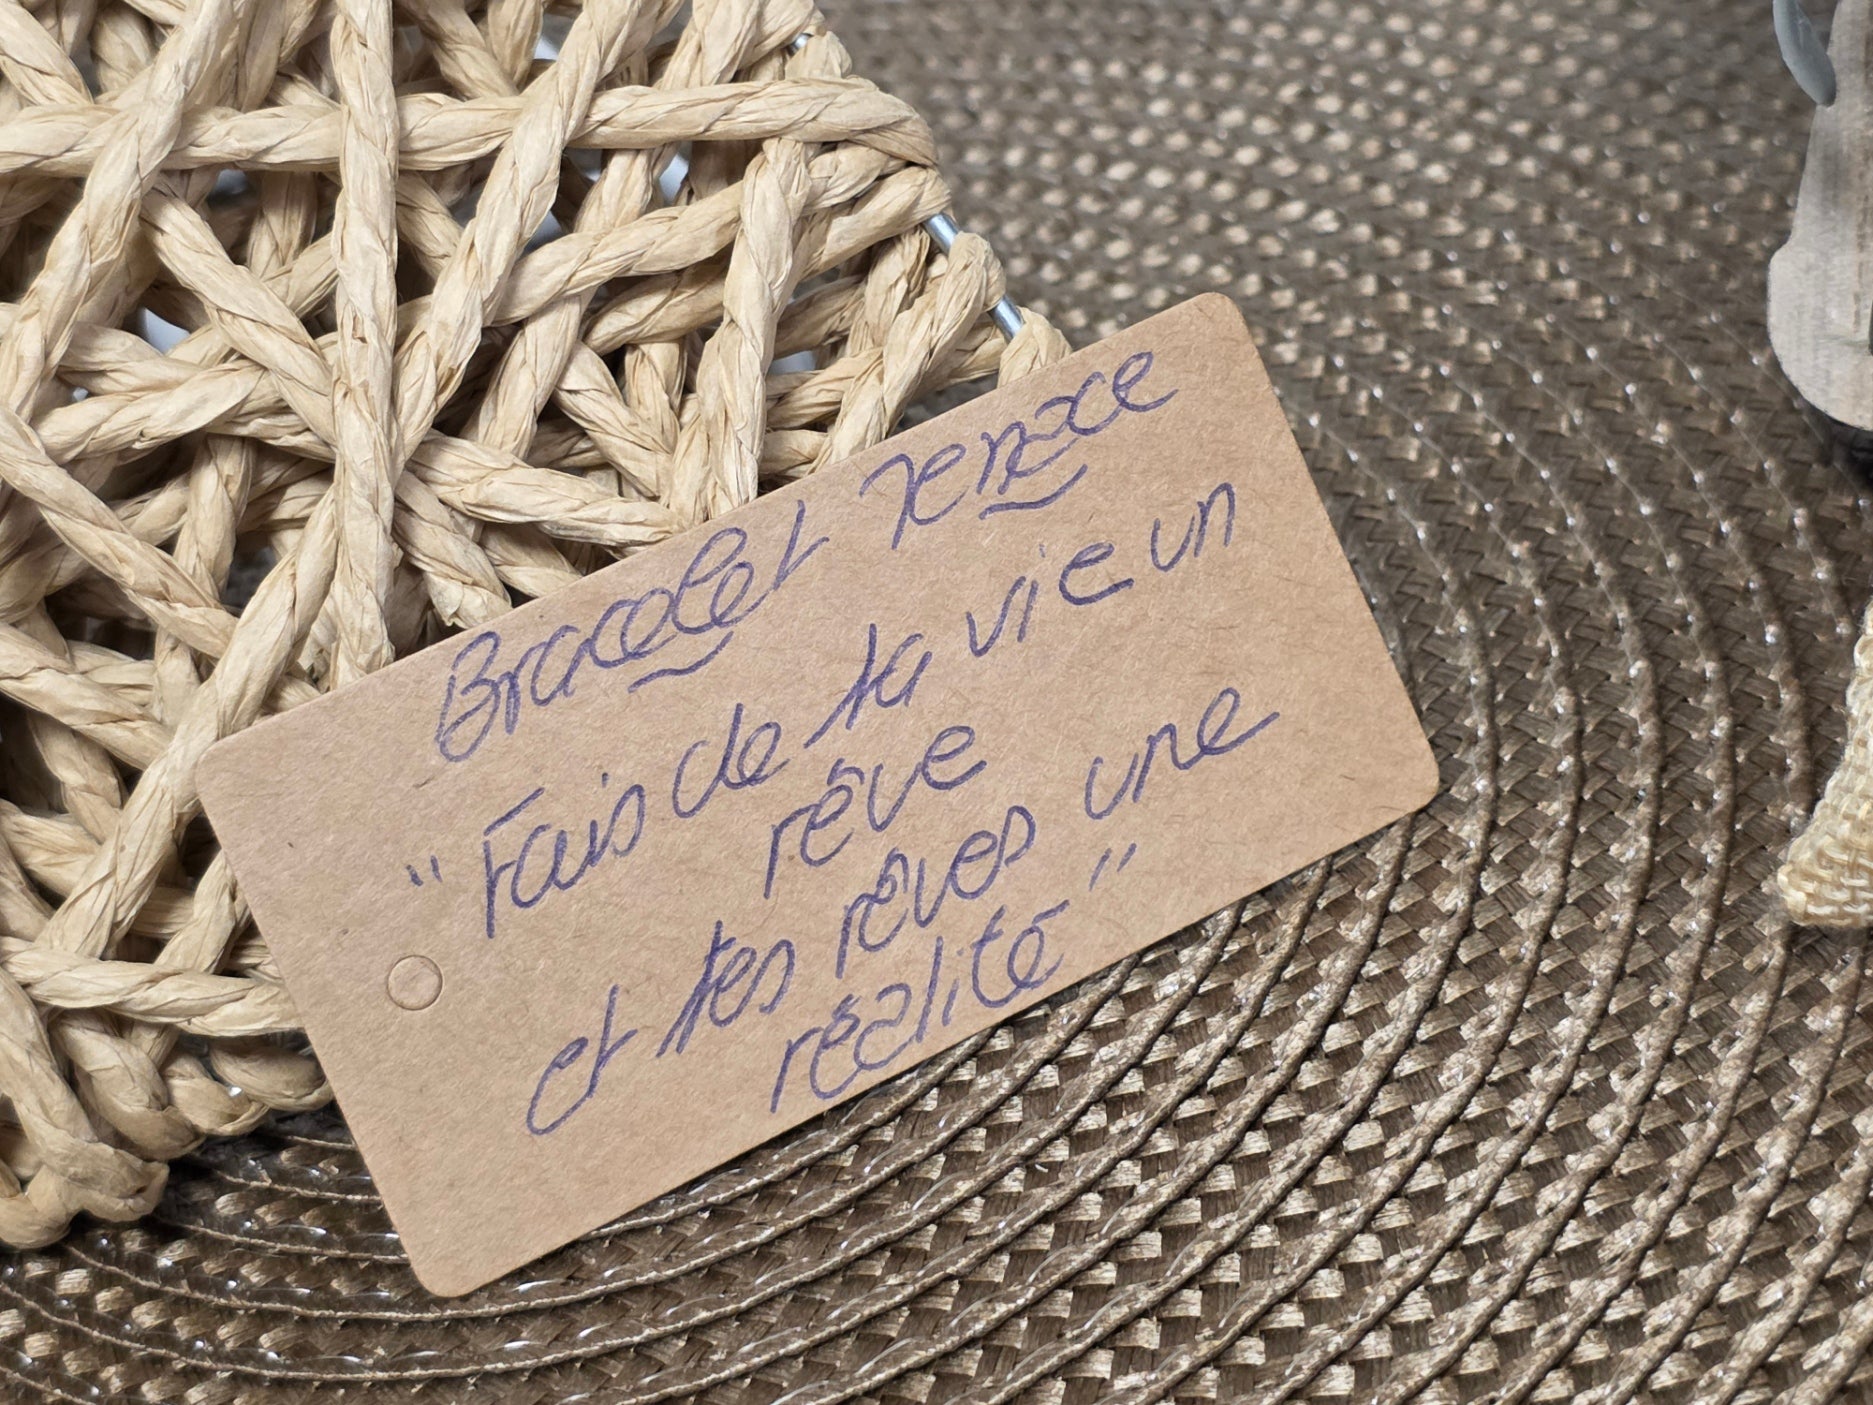 Bracelet Tenace
" Fais de ta vie un
rêve
et tes rêves une
réalité "